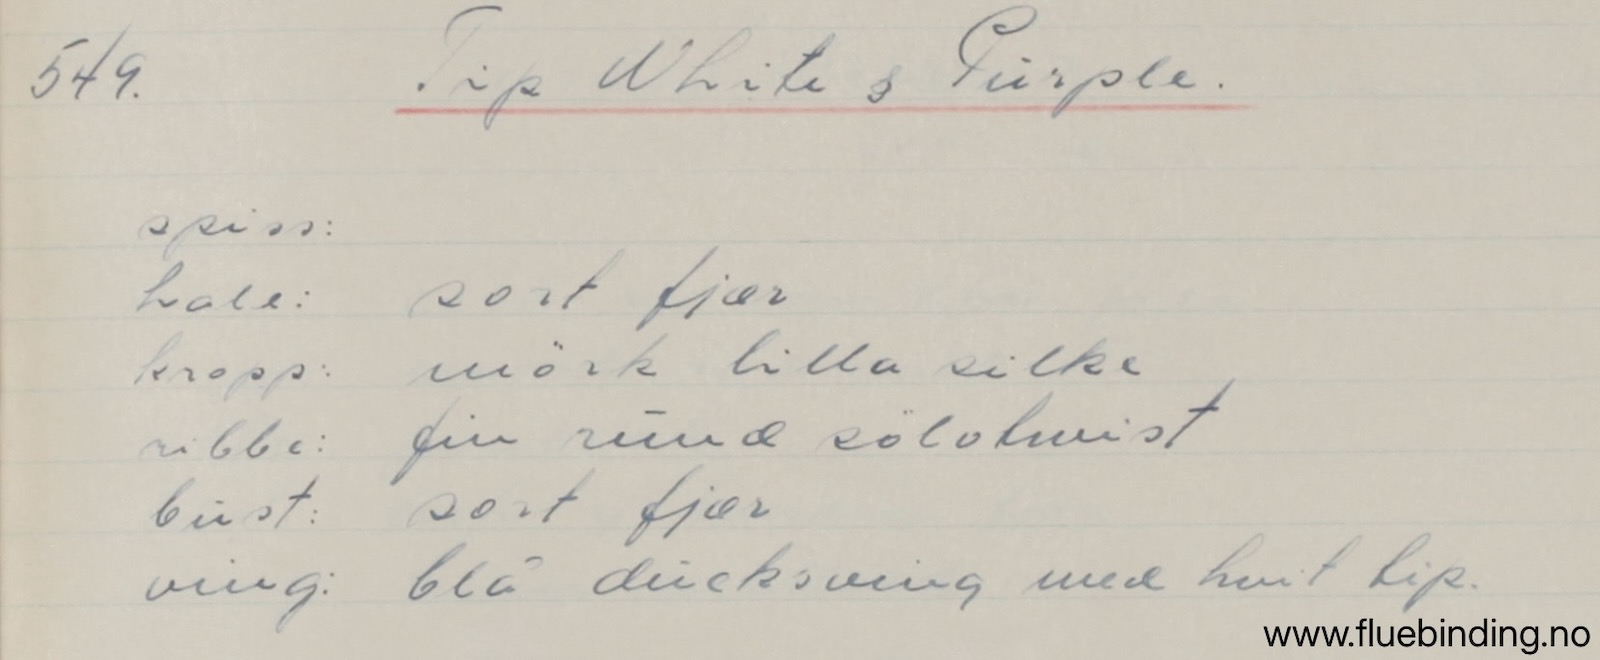 549. Tip White & Purple.
spiss:
hale: sort fjær
kropp: mörk lilla silke
ribbe: fin rund sölvtwist
büst: sort fjær
ving: blå ducksving med hvit tip.
www.fluebinding.no